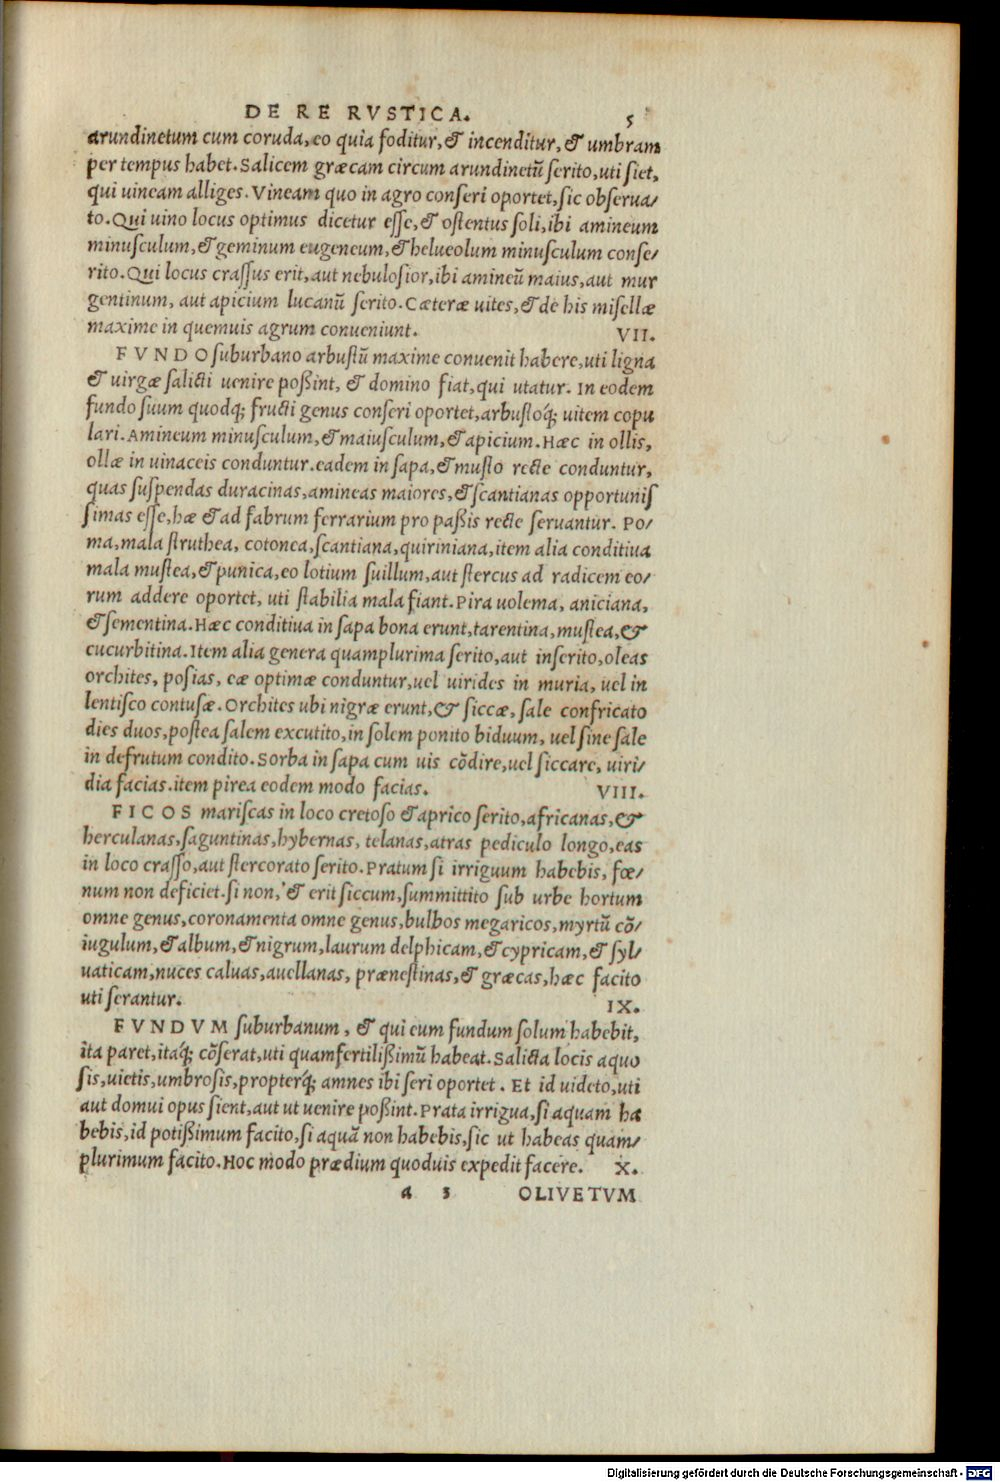 DE RE RVSTICA. 5
arundinetum cum coruda, eo quia foditur, & incenditur, & umbram
per tempus habet. Salicem græcam circum arundinetũ serito, uti siet,
qui uineam alliges. Vineam quo in agro conseri oportet, sic obserua/
to. Qui uino locus optimus dicetur esse, & ostentus soli, ibi amineum
minusculum, & geminum eugeneum, & helueolum minusculum conse/
rito. Qui locus crassus erit, aut nebulosior, ibi amineũ maius, aut mur
gentinum, aut apicium lucanũ serito. Cæteræ uites, & de his misellæ
maxime in quemuis agrum conueniunt. VII.
FVNDO suburbano arbustũ maxime conuenit habere, uti ligna
& uirgæ salicti uenire poßint, & domino fiat, qui utatur. In eodem
fundo suum quodq; fructi genus conseri oportet, arbustoq́; uitem copu
lari. Amineum minusculum, & maiusculum, & apicium. Hæc in ollis,
ollæ in uinaceis conduntur. eadem in sapa, & musto recte conduntur,
quas suspendas duracinas, amineas maiores, & scantianas opportunis
simas esse, hæ & ad fabrum ferrarium pro paßis recte seruantur. Po/
ma, mala struthea, cotonea, scantiana, quiriniana, item alia conditiua
mala mustea, & punica, eo lotium suillum, aut stercus ad radicem eo/
rum addere oportet, uti stabilia mala fiant. Pira uolema, aniciana,
& sementina. Hæc conditiua in sapa bona erunt, tarentina, mustea, &
cucurbitina. Item alia genera quamplurima serito, aut inserito, oleas
orchites, posias, eæ optimæ conduntur, uel uirides in muria, uel in
lentisco contusæ. Orchites ubi nigræ erunt, & siccæ, sale confricato
dies duos, postea salem excutito, in solem ponito biduum, uel sine sale
in defrutum condito. Sorba in sapa cum uis cõdire, uel siccare, uiri/
dia facias. item pirea eodem modo facias. VIII.
FICOS mariscas in loco cretoso & aprico serito, africanas, &
herculanas, saguntinas, hybernas, telanas, atras pediculo longo, eas
in loco crasso, aut stercorato serito. Pratum si irriguum habebis, fœ/
num non deficiet. si non, & erit siccum, summittito sub urbe hortum
omne genus, coronamenta omne genus, bulbos megaricos, myrtũ cõ/
iugulum, & album, & nigrum, laurum delphicam, & cypricam, & syl/
uaticam, nuces caluas, auellanas, prænestinas, & græcas, hæc facito
uti serantur. IX.
FVNDVM suburbanum, & qui eum fundum solum habebit,
ita paret, itaq́; cõserat, uti quamfertilißimũ habeat. Salicta locis aquo
sis, uietis, umbrosis, propterq́; amnes ibi seri oportet. Et id uideto, uti
aut domui opus sient, aut ut uenire poßint. Prata irrigua, si aquam ha
bebis, id potißimum facito, si aquã non habebis, sic ut habeas quam/
plurimum facito. Hoc modo prædium quoduis expedit facere. X.
a 3 OLIVETVM
Digitalisierung gefördert durch die Deutsche Forschungsgemeinschaft - DFG